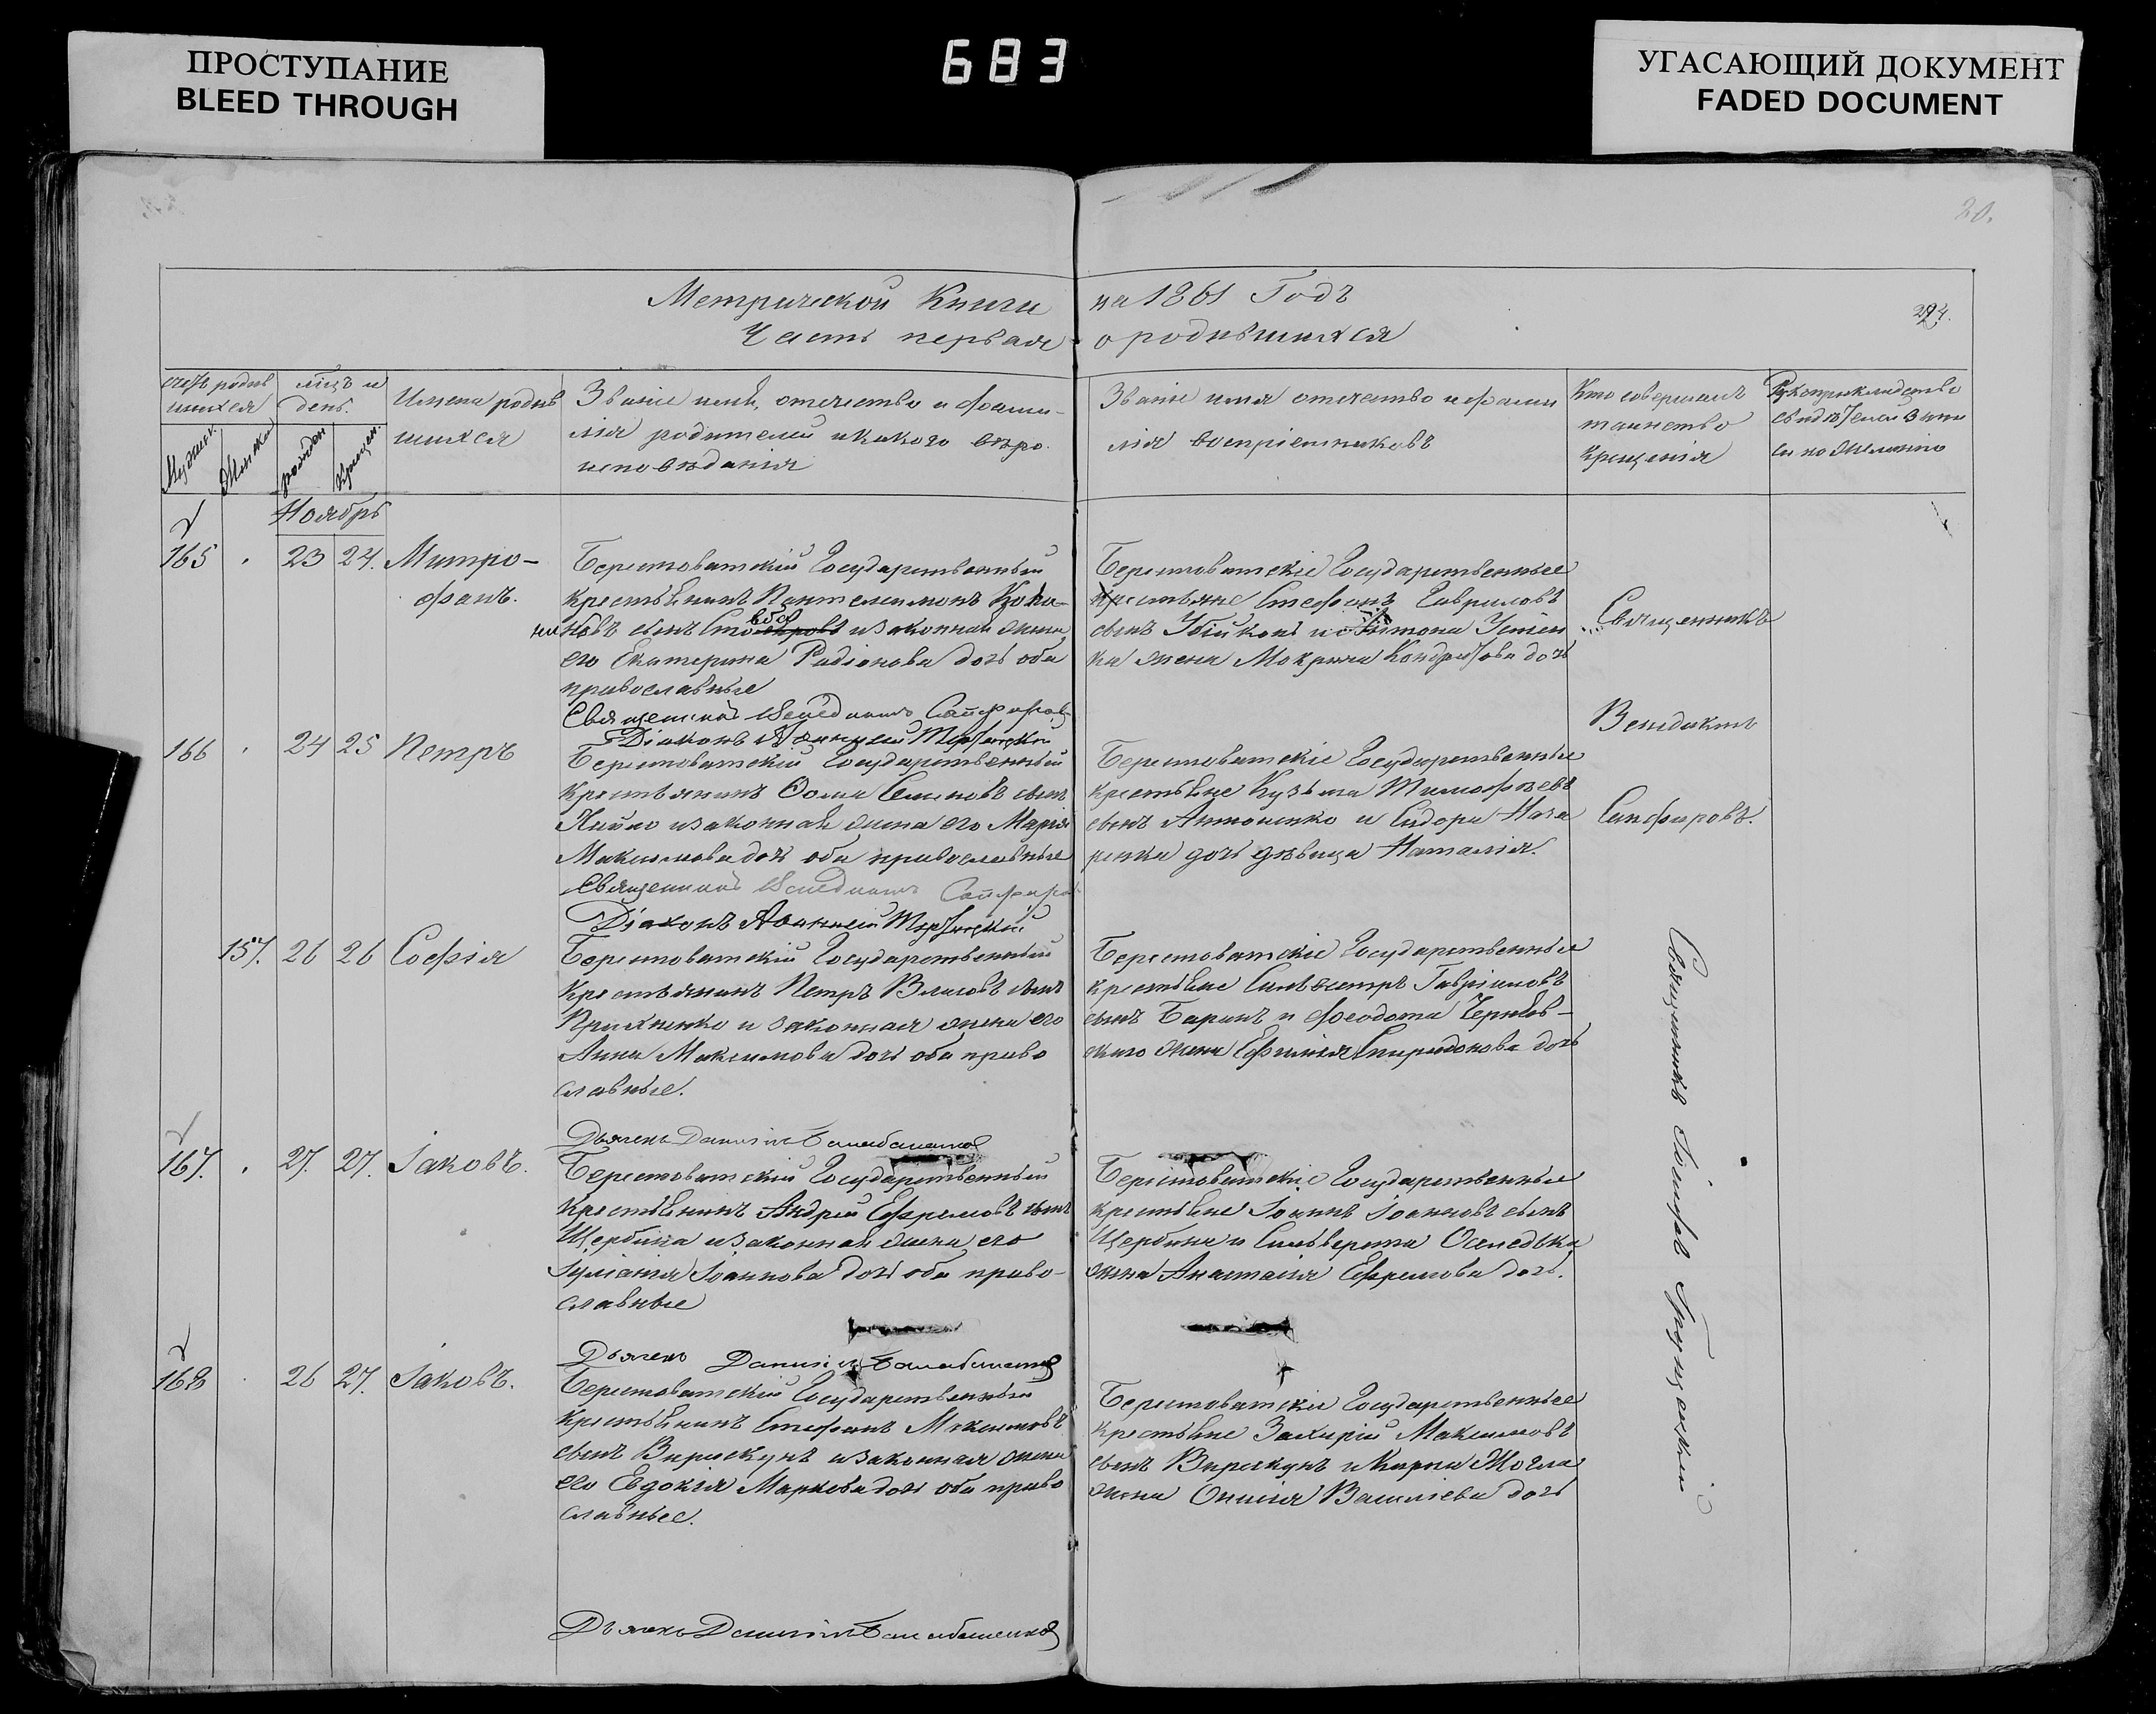 ПРОСТУПАНИЕ
BLEED THROUGH
683
УГАСАЮЩИЙ ДОКУМЕНТ
FADED DOCUMENT
20.
Метрической Книги на 1861 Годъ
Часть первая о родившихся
счетъ родив
шихся
Мужеск.
Женска
мѣсцъ и
день.
рожден
крещен.
Имена родив
шихся
Званіе имя, отечество и фами-
лія родителей и какого вѣро-
исповѣданія
Званіе имя отечество и фами
лія воспріемниковъ
Кто совершалъ
таинство
крещенія
Рукоприкладство
свидѣтелей записи
по желанію
Ноябрь
165 23 24. Митро-
фанъ.
Берестоватскій Государственный
крестьянинъ Пантелеимонъ
сынъ и законная жена
его Екатерина Радіонова дочь оба
православные
Священникъ Венедиктъ Сапфировъ
Діаконъ
Берестоватскіе Государственные
крестьяне Стефанъ Гавриловъ
сынъ
жена Мокрина Кондратова дочь
Священникъ
Венедиктъ
Сапфировъ.
166 24 25 Петръ
Берестоватскій Государственный
крестьянинъ Ѳома Семеновъ сынъ
и законная жена его Марія
Максимова дочь оба православные
Священникъ Венедиктъ Сапфировъ
Діаконъ
Берестоватскіе Государственные
крестьяне Кузьма Тимофѣевъ
сынъ Антоненко и Сидора Наза
ренка дочь дѣвица Наталія.
157. 26 26 Софія
Берестоватскій Государственный
крестьянинъ Петръ Власовъ сынъ
Прихненко и законная жена его
Анна Максимова дочь оба право
славные.
Дьячекъ Даніилъ
Берестоватскіе Государственные
крестьяне Сильвестръ Гавриловъ
сынъ Баранъ и Феодота Чернов-
скаго жена Ефимія Спиридонова дочь
Священникъ
167. 27. 27. Іаковъ.
Берестоватскій Государственный
крестьянинъ Андрей Ефремовъ сынъ
Щербина и законная жена его
Іуліанія Іоаннова дочь оба право-
славные
Дьячекъ Даніилъ
Берестоватскіе Государственные
крестьяне Іоаннъ Іоанновъ сынъ
Щербина и Сильверста Оселедька
жена Анастасія Ефремова дочь.
168 26 27. Іаковъ.
Берестоватскій Государственный
крестьянинъ Стефанъ Максимовъ
сынъ Вирискунъ и законная жена
его Евдокія Маркова дочь оба право
славные.
Дьячекъ Даніилъ
Берестоватскіе Государственные
крестьяне Захарій Максимовъ
сынъ Вирискунъ и Карпа
жена Онисія Василіева дочь